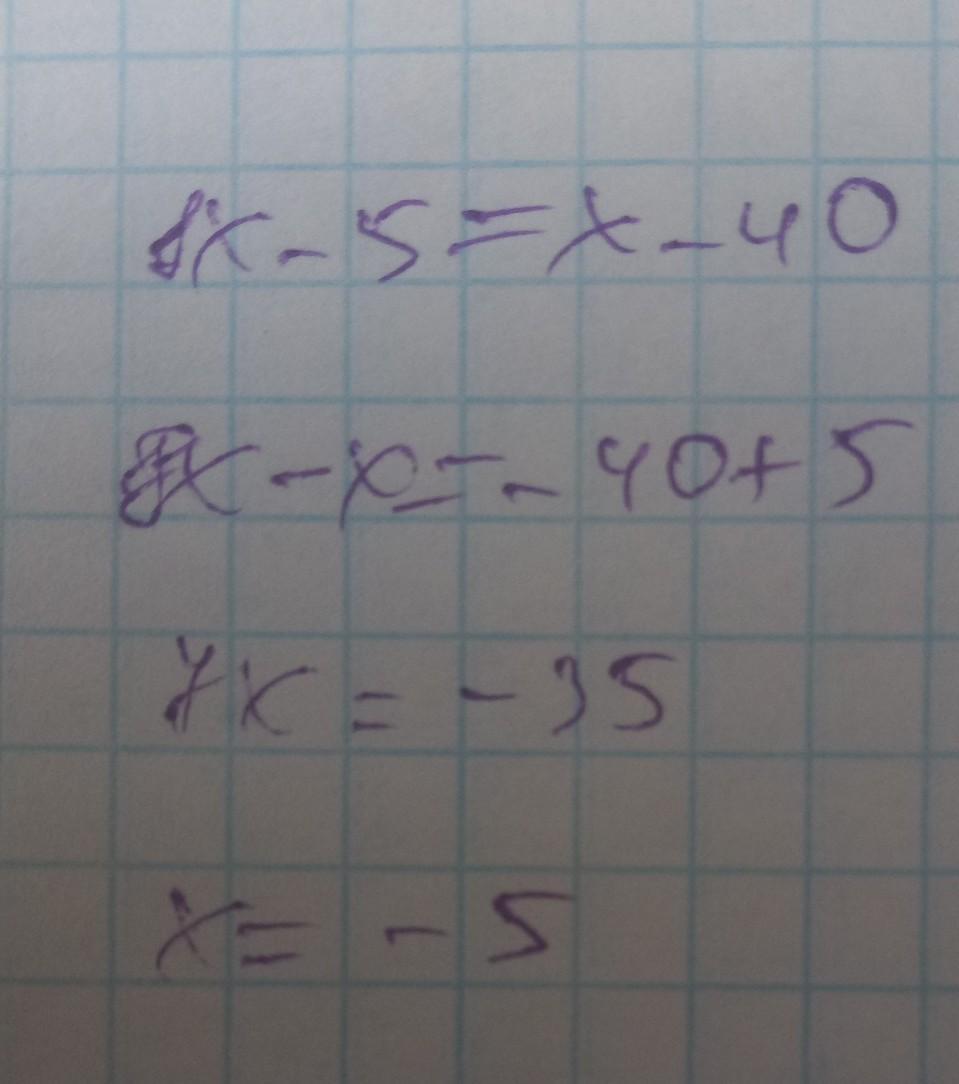 8x - 5 = x - 40
x - x = - 40 + 5
7x = - 35
x = - 5